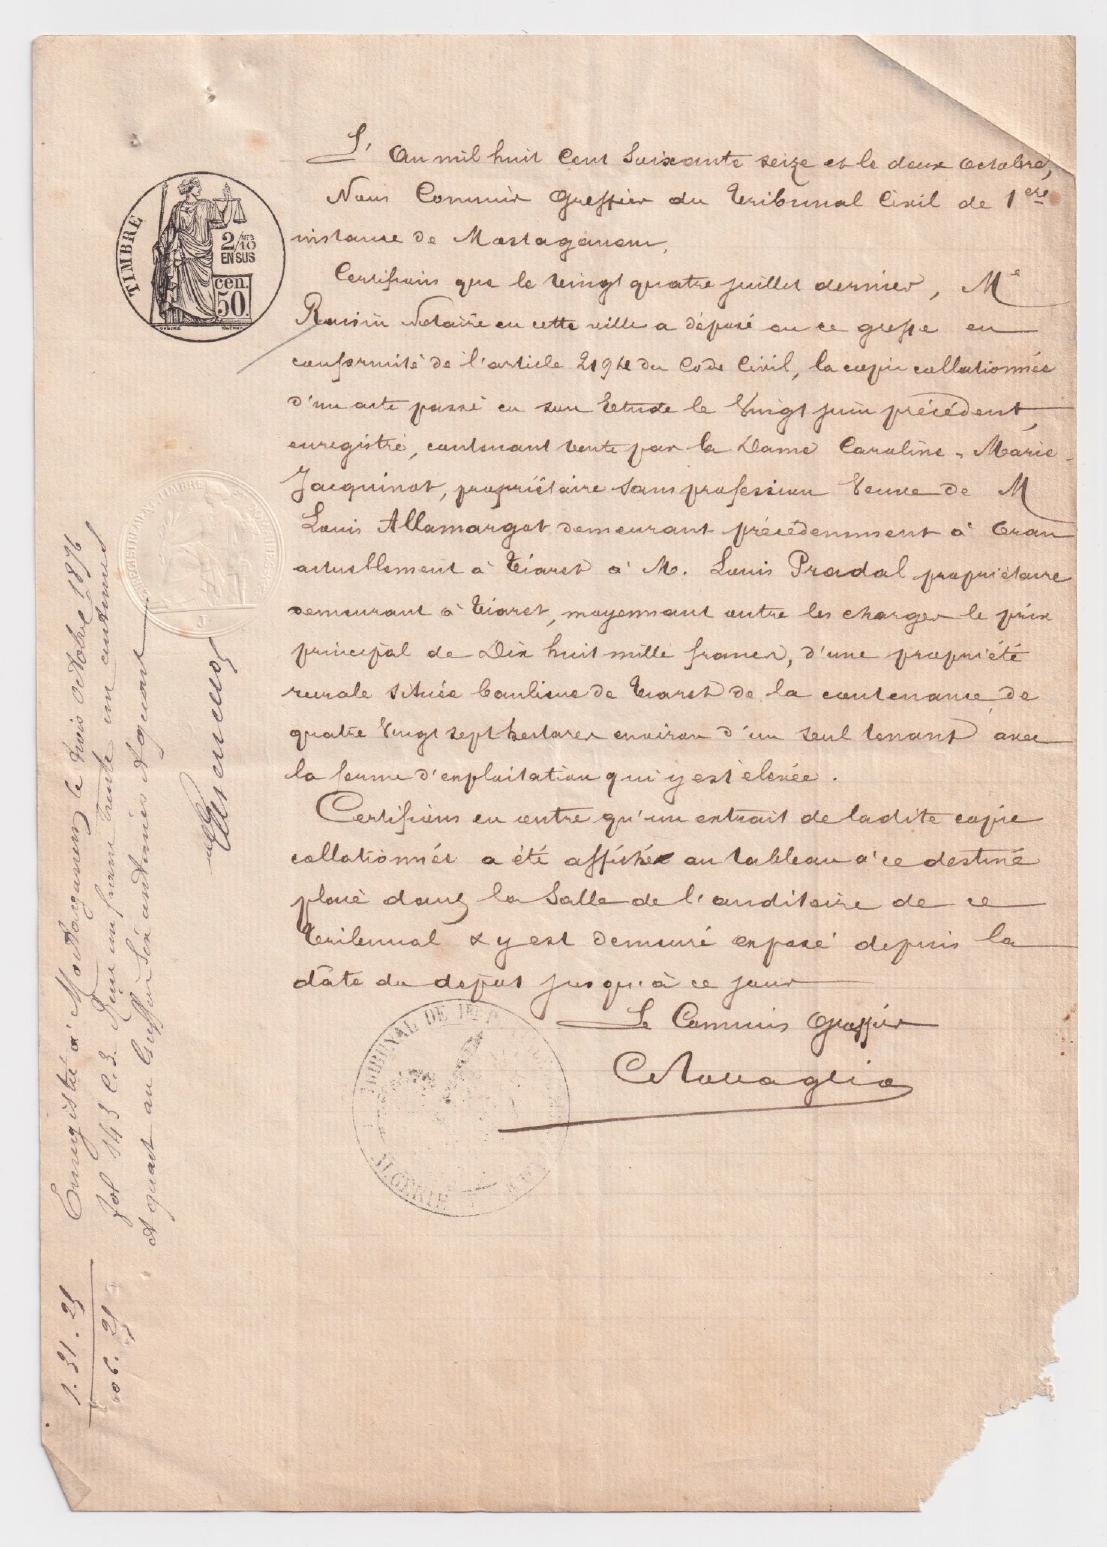 L'An mil huit Cent Soixante seize et le deux Octobre,
Nous Commis Greffier du Tribunal Civil de 1ère
instance de Mostaganem,
Certifions que le vingt quatre juillet dernier, Me
Notaire en cette ville a déposé en ce greffe en
conformité de l'article 2194 du Code Civil, la copie collationnée
d'un acte passé en son Etude le Vingt juin précédent,
enregistré, contenant vente par la Dame Caroline-Marie
Jacquinot, propriétaire sans profession Veuve de M
Louis Allamargot demeurant précédemment à Oran
actuellement à Tiaret à M. Louis Pradal propriétaire
demeurant à Tiaret, moyennant outre les charges le prix
principal de Dix huit mille francs, d'une propriété
rurale située banlieue de Tiaret de la contenance de
quatre Vingt sept hectares environ d'un seul tenant avec
la ferme d'exploitation qui y est élevée.
Certifions en outre qu'un extrait de ladite copie
collationnée a été affiché au tableau à ce destiné
placé dans la Salle de l'auditoire de ce
Tribunal & y est demeuré exposé depuis la
date du dépôt jusqu'à ce jour
Le Commis Greffier
TIMBRE
2/10
EN SUS
cen.
50.
TIMBRE
TRIBUNAL DE 1ère
ALGERIE
Enregistré à Mostaganem le trois octobre 1876
fol 143 C. 3. Reçu un franc trente un centimes
&quart au Greffier Six centimes &quart
1. 31. 25
06. 25